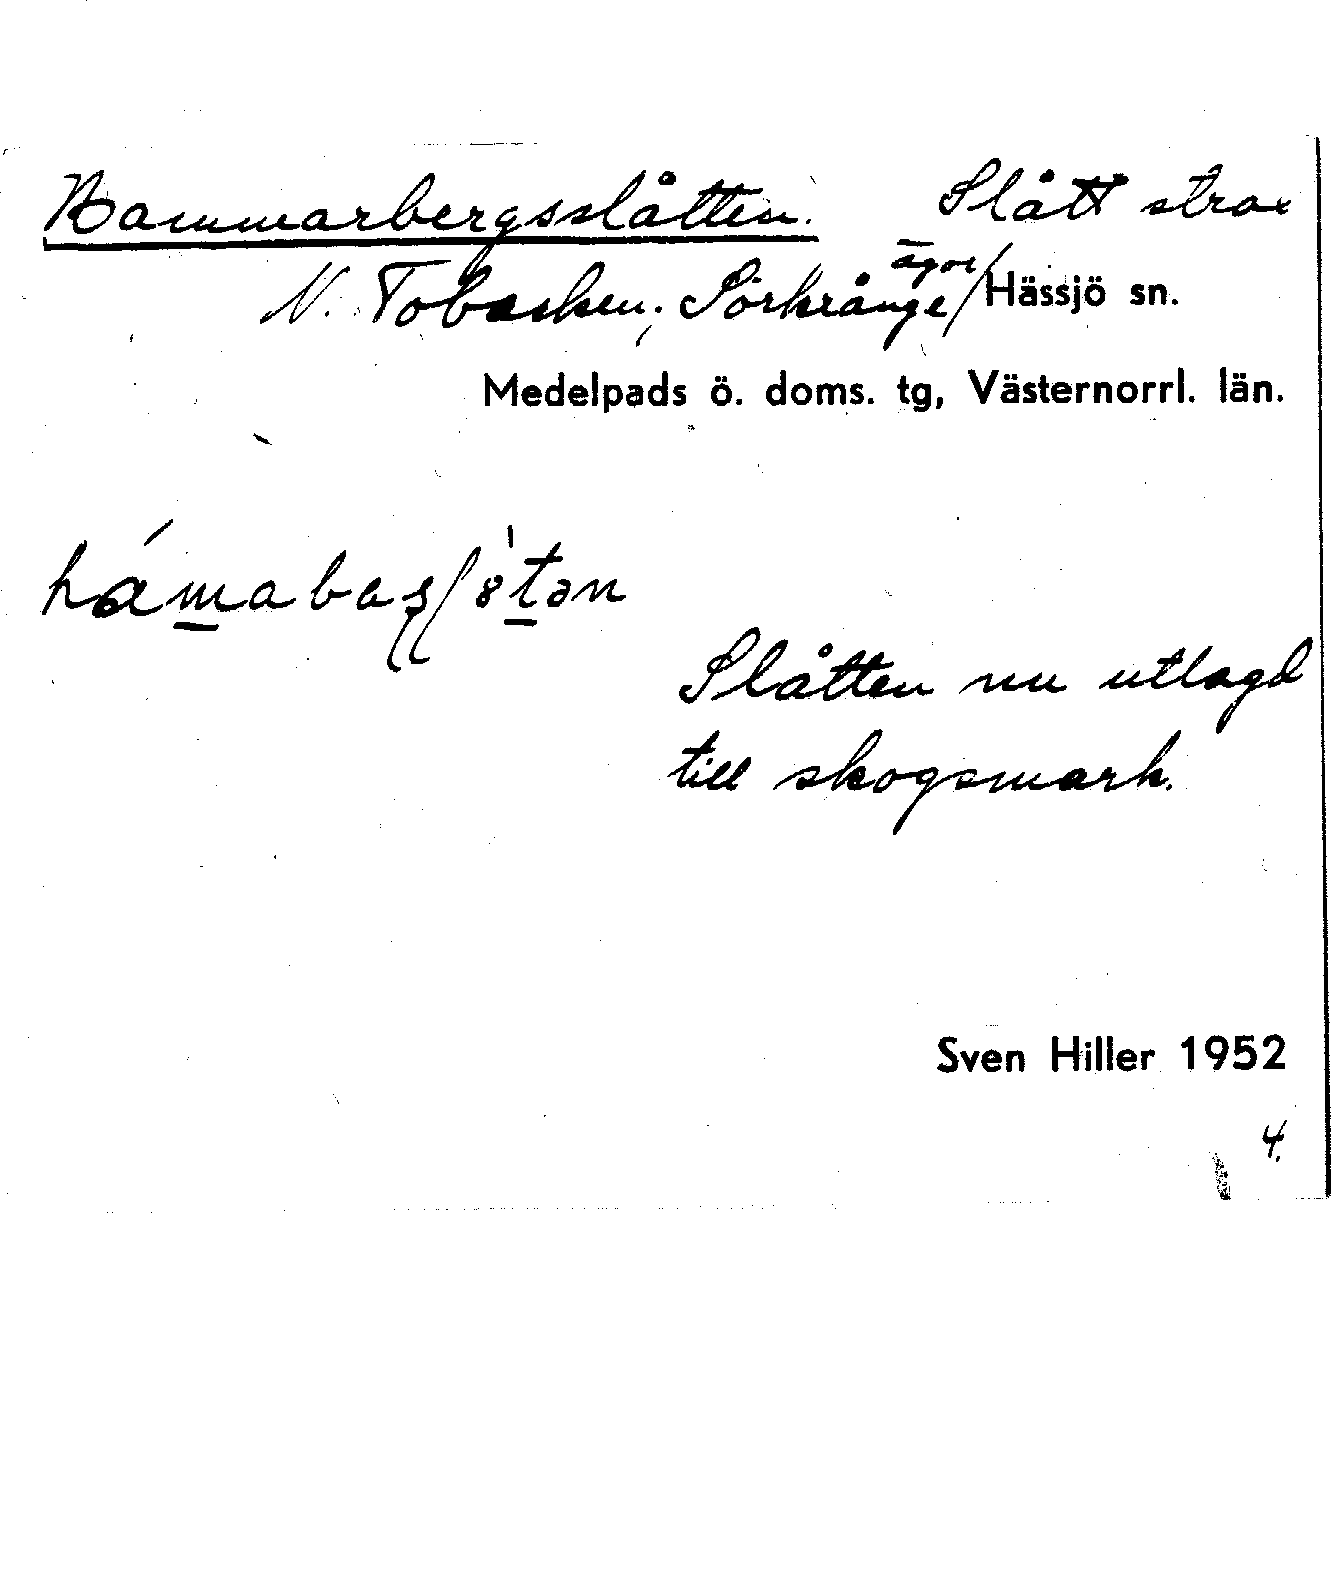 Hammarbergsslåtten. Slått strax
N. Tobacken; Sörkrånge ägor/Hässjö sn.
Medelpads ö. doms. tg, Västernorrl. län.
Slåtten nu utlagd
till skogsmark.
Sven Hiller 1952
4.